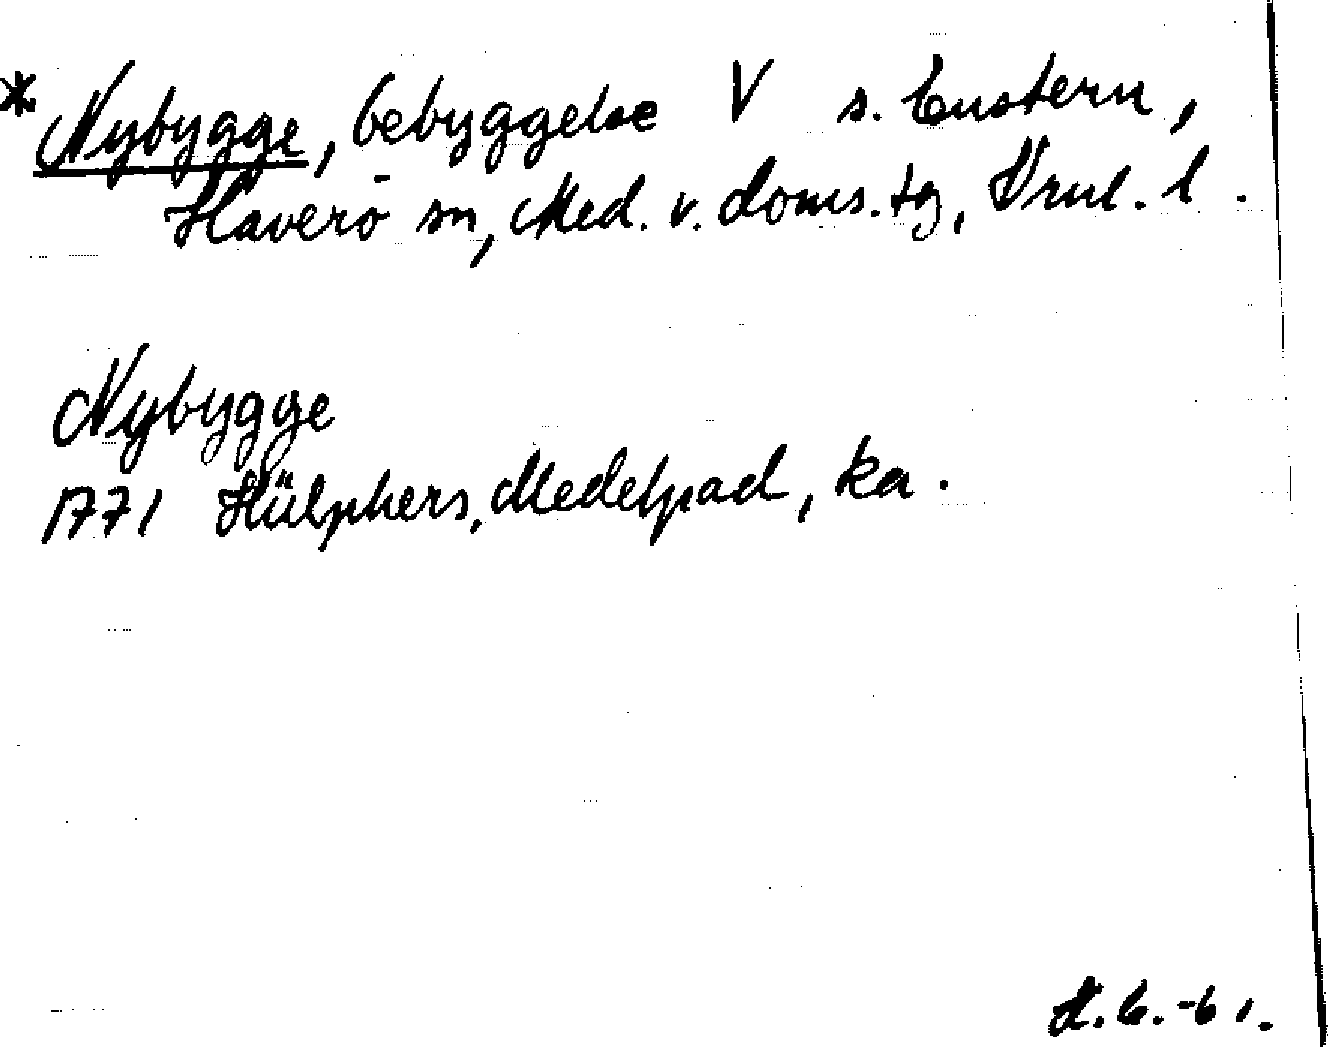 * Nybygge, bebyggelse V s.
Haverö sn, Med. v. doms. tg, Vrnl. l.
Nybygge
1771 Hülphers, Medelpad, ka.
-61.